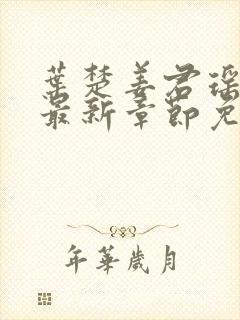 葉楚姜君瑤
最新章節免
年華歲月